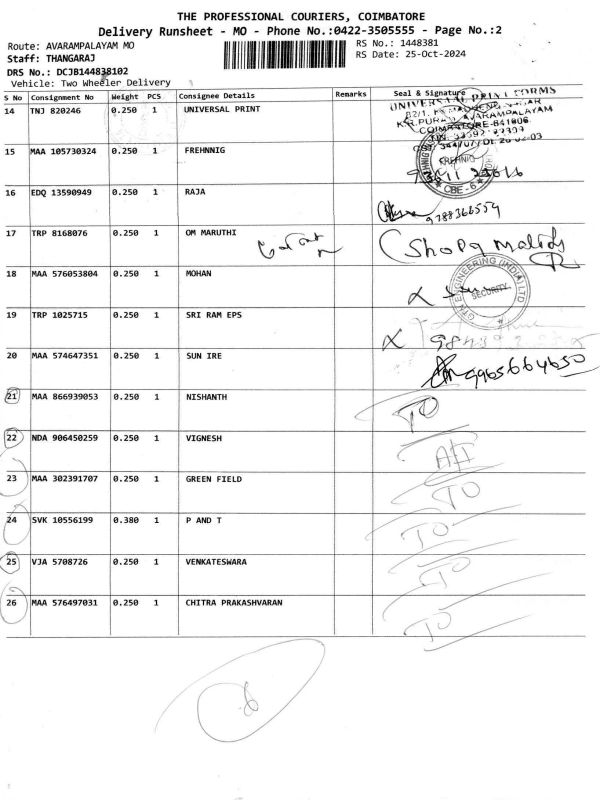 THE PROFESSIONAL COURIERS, COIMBATORE
Delivery Runsheet - MO - Phone No.:0422-3505555 - Page No.:2
Route: AVARAMPALAYAM MO
RS No.: 1448381
Staff: THANGARAJ
RS Date: 25-Oct-2024
DRS No.: DCJB144838102
Vehicle: Two Wheeler Delivery
S No Consignment No Weight PCS Consignee Details Remarks Seal & Signature
14 TNJ 820246 0.250 1 UNIVERSAL PRINT
UNIVERSAL PRINT FORMS
AVARAMPALAYAM
COIMBATORE-641006
15 MAA 105730324 0.250 1 FREHNNIG
CBE-6
16 EDQ 13590949 0.250 1 RAJA
9788366559
17 TRP 8168076 0.250 1 OM MARUTHI
18 MAA 576053804 0.250 1 MOHAN
GTN ENGINEERING (INDIA) LTD
SECURITY
19 TRP 1025715 0.250 1 SRI RAM EPS
20 MAA 574647351 0.250 1 SUN IRE
9965664650
21 MAA 866939053 0.250 1 NISHANTH TO
22 NDA 906450259 0.250 1 VIGNESH
23 MAA 302391707 0.250 1 GREEN FIELD TO
24 SVK 10556199 0.380 1 P AND T TO
25 VJA 5708726 0.250 1 VENKATESWARA TO
26 MAA 576497031 0.250 1 CHITRA PRAKASHVARAN TO